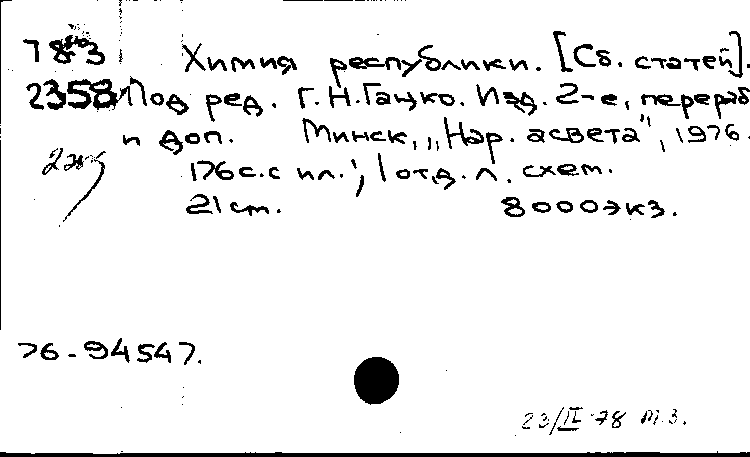 Химия республики. [Сб. статей].
2358 Под ред. Г.Н.Гацко. Изд. 2-е, перераб
и доп. Минск, „Нар. асвета", 1976.
2 экз
176 с. с ил.; 1 отд. л. схем.
21 см. 8000 экз.
76-94547.
23/II 78 м.з.